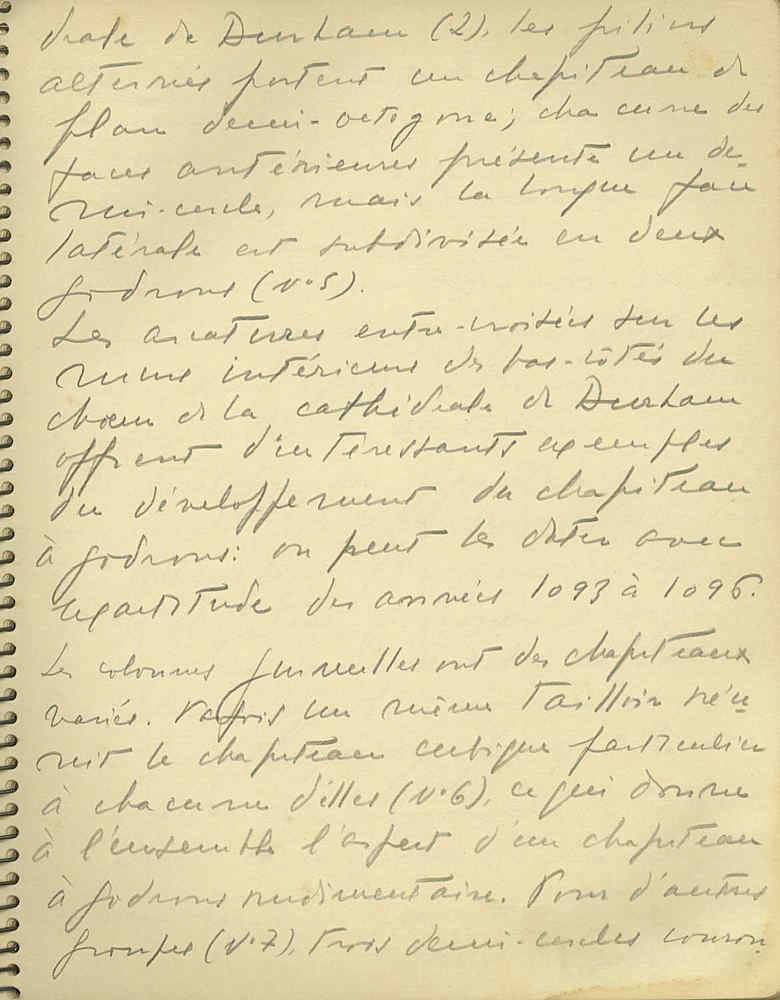 drale de Durham (2), les piliers
alternés portent un chapiteau de
plan demi-octogone; chacune des
faces antérieures présente un de-
mi-cercle, mais la longue face
latérale est subdivisée en deux
godrons (N°5).
Les arcatures entre-croisées sur les
murs intérieurs des bas-côtés du
chœur de la cathédrale de Durham
offrent d'intéressants exemples
du développement du chapiteau
à godrons: on peut les dater avec
exactitude des années 1093 à 1096.
Les colonnes jumelles ont des chapiteaux
variés. Parfois un même tailloir réu-
nit le chapiteau cubique particulier
à chacune d'elles (N°6), ce qui donne
à l'ensemble l'aspect d'un chapiteau
à godrons rudimentaire. Pour d'autres
groupes (N°7), trois demi-cercles couron-